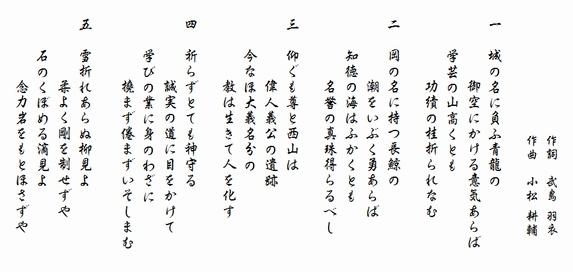 作詞 武島 羽衣
作曲 小松 耕輔
一 城の名に負ふ青龍の
御空にかける意気あらば
学芸の山高くとも
功績の桂折られなむ
二 岡の名に持つ長鯨の
潮をいぶく勇あらば
知徳の海はふかくとも
名誉の真珠得らるべし
三 仰ぐも尊と西山は
偉人義公の遺跡
今なほ大義名分の
教は生きて人を化す
四 折らずとても神守る
誠実の道に目をかけて
学びの業に身のわざに
撓まず倦まずいそしまむ
五 雪折れあらぬ柳見よ
柔よく剛を制せずや
石のくぼめる滴見よ
念力岩をもとほさずや